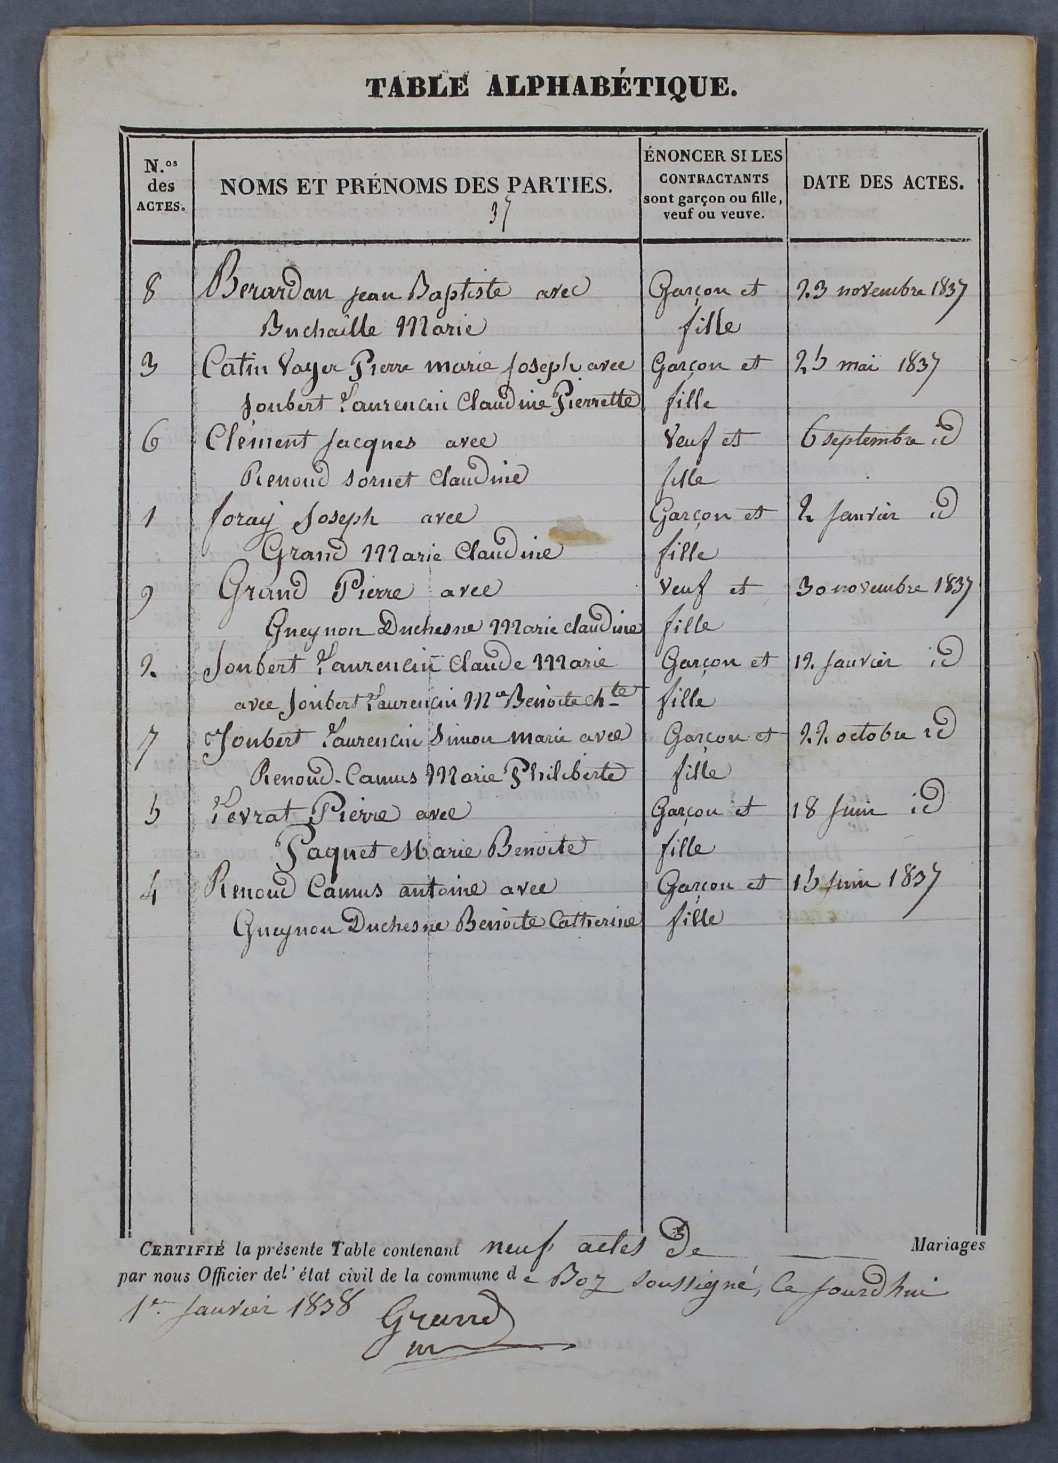 TABLE ALPHABÉTIQUE.
N.os des ACTES.
NOMS ET PRÉNOMS DES PARTIES.
37
ÉNONCER SI LES CONTRACTANTS sont garçon ou fille, veuf ou veuve.
DATE DES ACTES.
8 Berardan jean Baptiste avec Garçon et 23 novembre 1837
Buchaille Marie fille
3 Catin Vayer Pierre marie Joseph avec Garçon et 25 mai 1837
Joubert Laurencin Claudine Pierrette fille
6 Clément Jacques avec Veuf et 6 septembre id
Renoud Sornet Claudine fille
1 foray Joseph avec Garçon et 2 Janvier id
Grand Marie Claudine fille
9 Grand Pierre avec Veuf et 30 novembre 1837
Gueynon Duchesne Marie claudine fille
2 Joubert Laurencin Claude Marie Garçon et 12 Janvier id
avec Joubert Laurencin Mie Benoite Chte fille
7 Joubert Laurencin Simon marie avec Garçon et 22 octobre id
Renoud-Camus Marie Philiberte fille
5 Levrat Pierre avec Garçon et 18 Juin id
Paquet Marie Benoite fille
4 Renoud Camus antoine avec Garçon et 15 Juin 1837
Gueynon Duchesne Benoite Catherine fille
CERTIFIÉ la présente Table contenant neuf actes de Mariages
par nous Officier de l'état civil de la commune de Boz soussigné, Ce jourd'hui
1er Janvier 1838 Grand
m